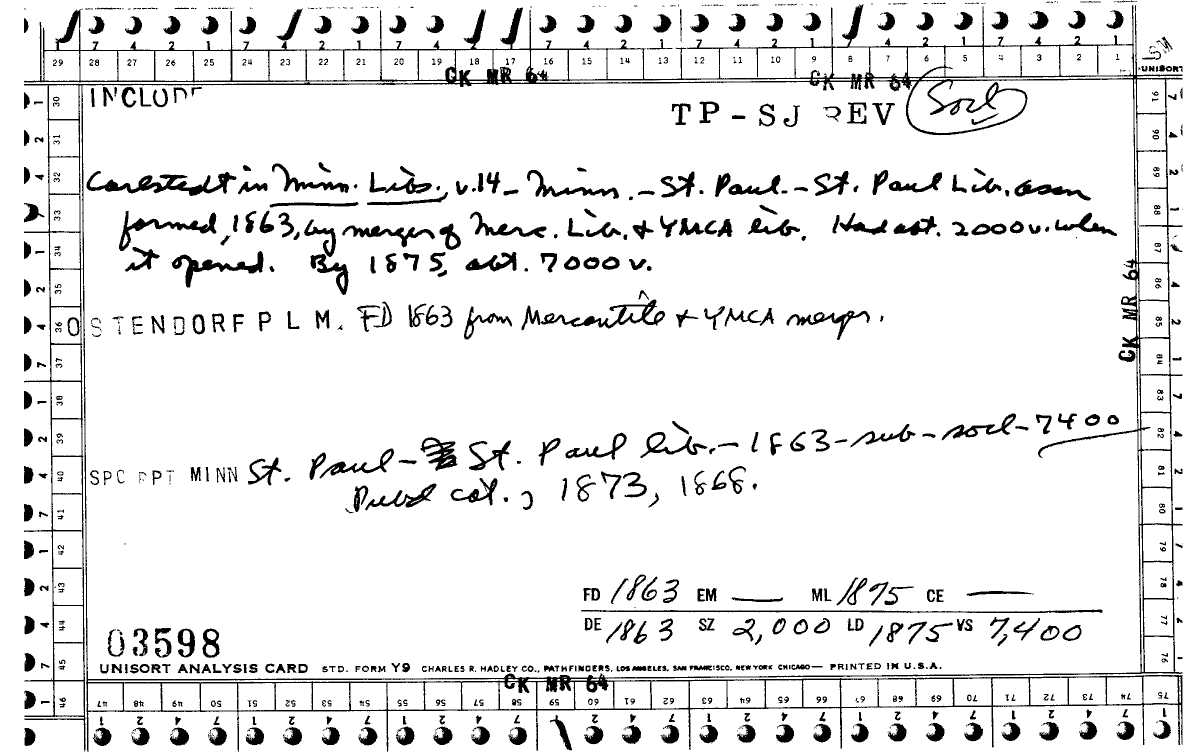 7 4 2 1 7 4 2 1 7 4 2 1 7 4 2 1 7 4 2 1 7 4 2 1 7 4 2 1
29 28 27 26 25 24 23 22 21 20 19 18 17 16 15 14 13 12 11 10 9 8 7 6 5 4 3 2 1 SM
CK MR 64 CK MR 64 UNISORT
INCLUDE
TP-SJ REV Socl
Carlstedt in Minn. Libs., v.14 - Minn. - St. Paul. - St. Paul Lib. assn
formed, 1863, by merger of Merc. Lib. & YMCA lib. Had abt. 2000 v. when
it opened. By 1875, abt. 7000 v.
OSTENDORF P L M. FD 1863 from Mercantile & YMCA merger.
CK MR 64
SPC RPT MINN St. Paul - St. Paul lib. - 1863 - sub - socl - 7400
Publ cat., 1873, 1868.
FD 1863 EM — ML 1875 CE —
DE 1863 SZ 2,000 LD 1875 VS 7,400
03598
UNISORT ANALYSIS CARD STD. FORM Y9 CHARLES R. HADLEY CO., PATHFINDERS, LOS ANGELES, SAN FRANCISCO, NEW YORK CHICAGO — PRINTED IN U.S.A.
CK MR 64
47 48 49 50 51 52 53 54 55 56 57 58 59 60 61 62 63 64 65 66 67 68 69 70 71 72 73 74 75